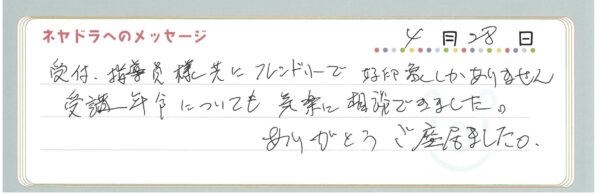 ネヤドラへのメッセージ
4月28日
受付、指導員様共にフレンドリーで 好印象しかありません
受講
についても 気楽に相談できました。
ありがとう ご座居ました。